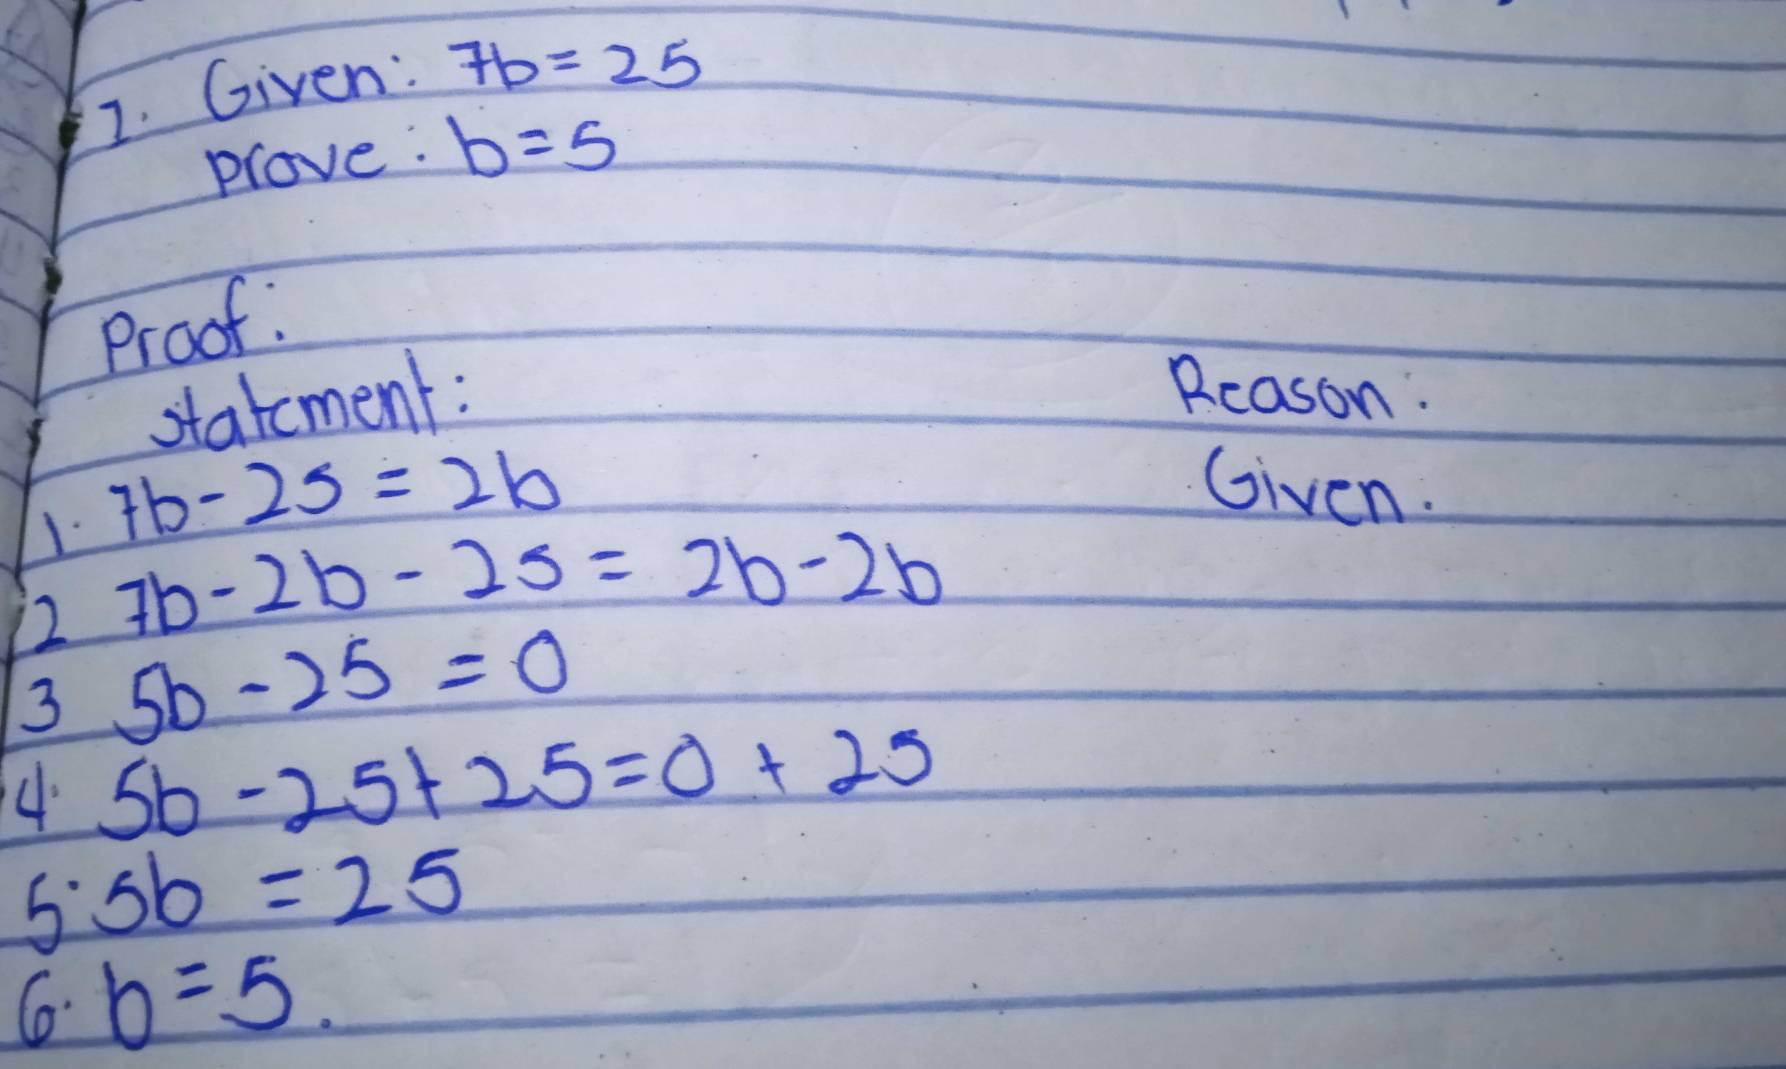 1. Given: 7b = 25
Prove: b = 5
Proof:
Statement: Reason:
1. 7b - 25 = 2b Given.
2 7b - 2b - 25 = 2b - 2b
3 5b - 25 = 0
4. 5b - 25 + 25 = 0 + 25
5. 5b = 25
6. b = 5.